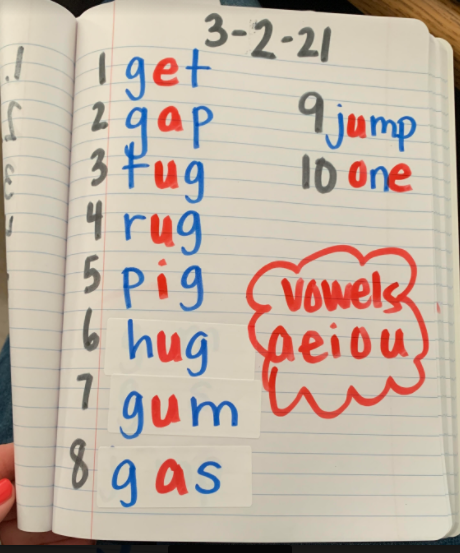 3-2-21
1 get
2 gap
3 tug
4 rug
5 pig
6 hug
7 gum
8 gas
9 jump
10 one
vowels
aeiou